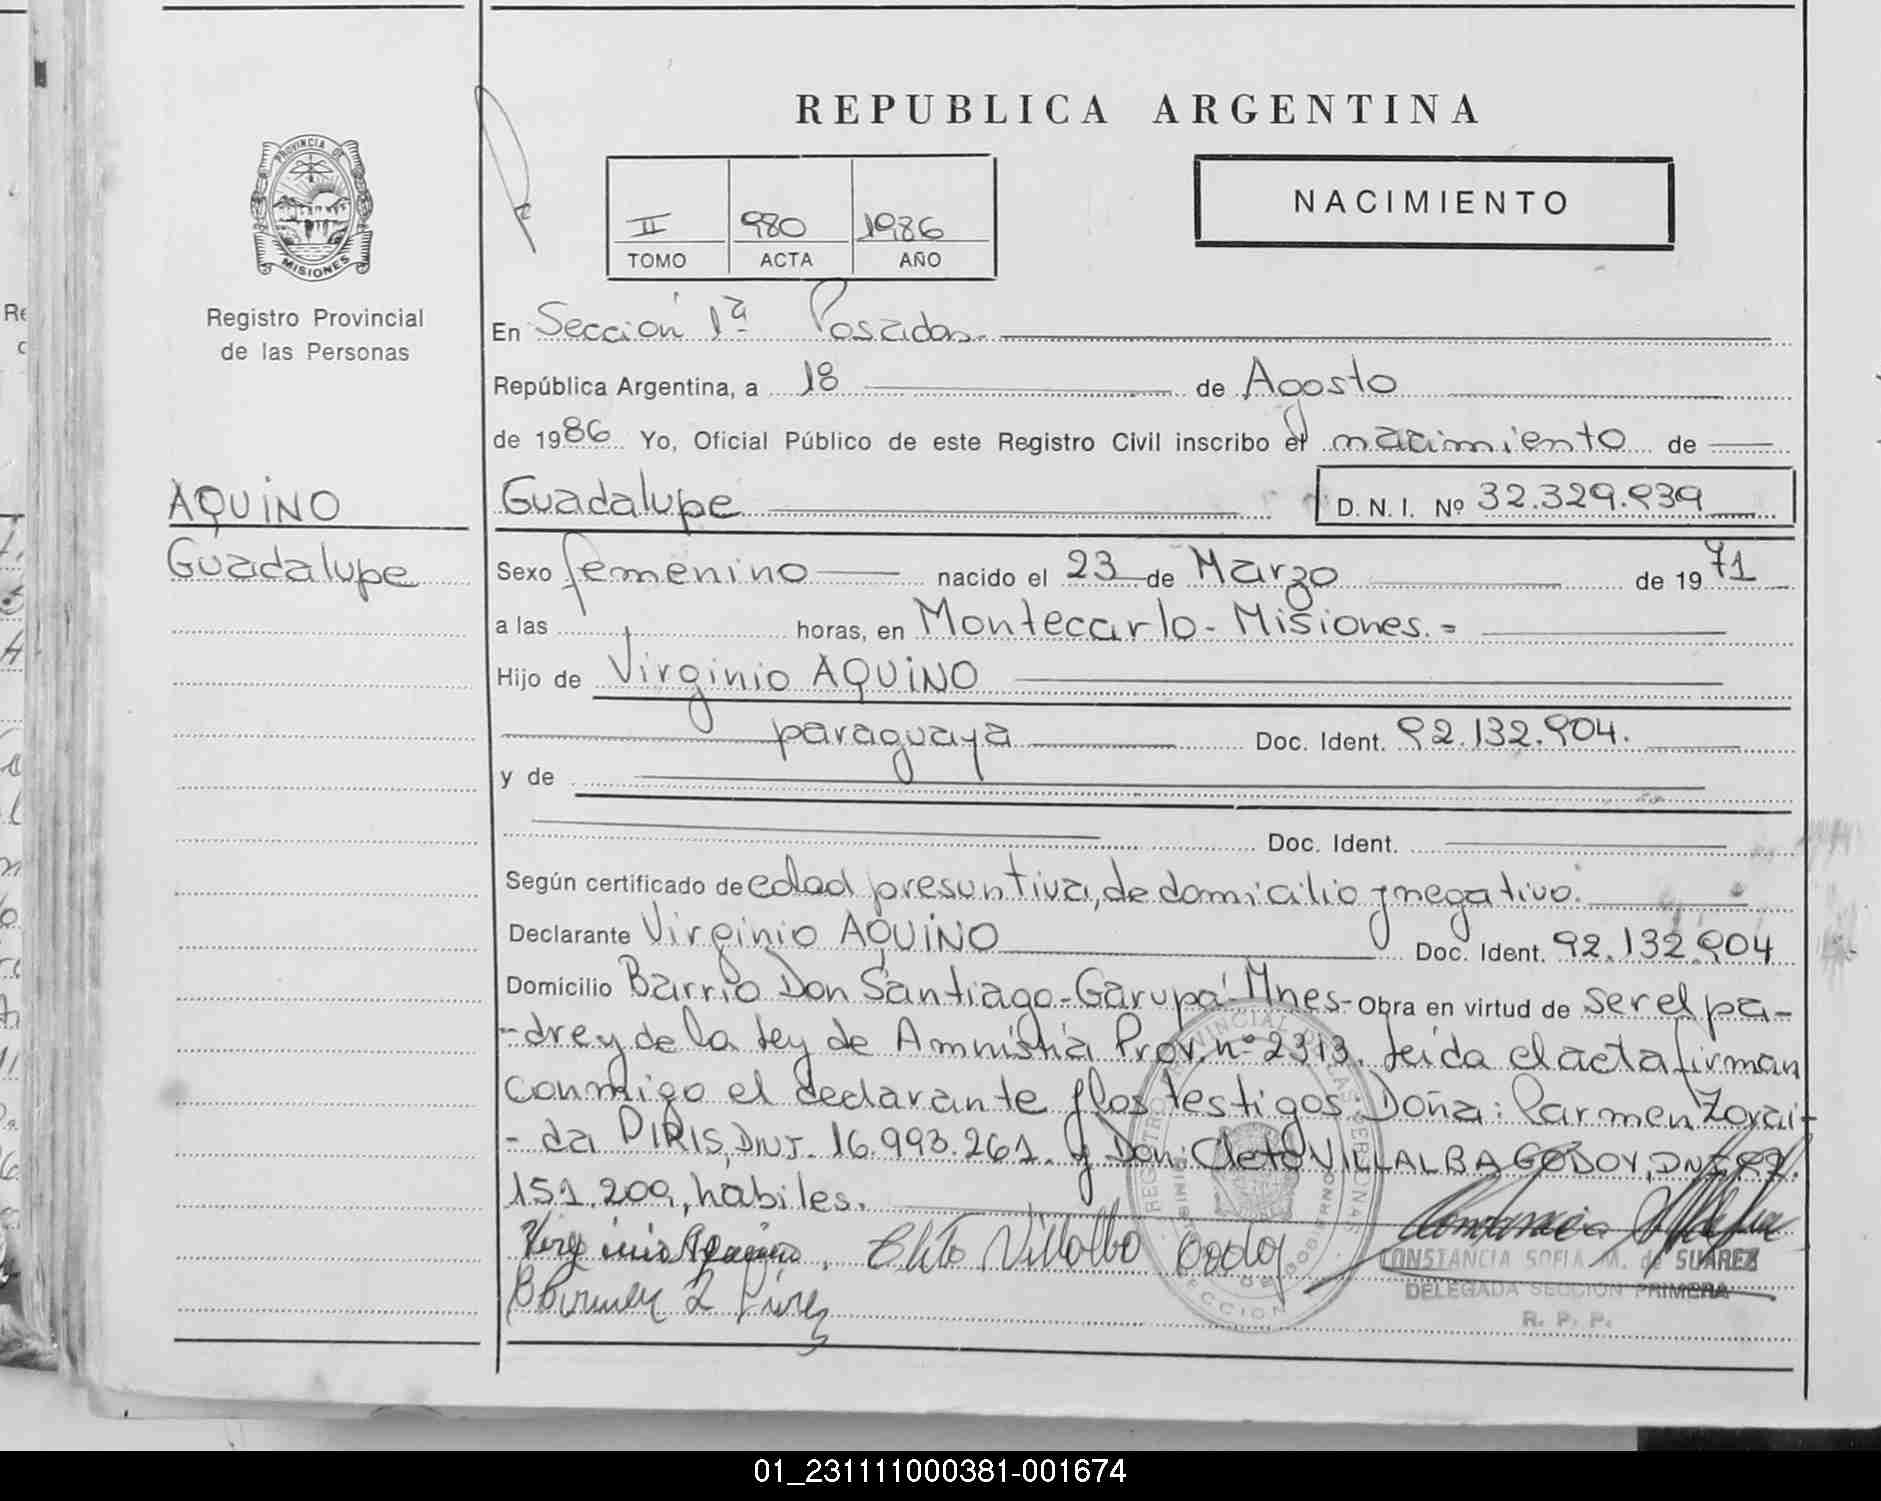 REPUBLICA ARGENTINA
PROVINCIA DE
MISIONES
Registro Provincial
de las Personas
II 980 1986
TOMO ACTA AÑO
NACIMIENTO
En Sección 1ª Posadas.
República Argentina, a 18 de Agosto
de 1986 Yo, Oficial Público de este Registro Civil inscribo el nacimiento de
AQUINO
Guadalupe
Guadalupe D. N. I. Nº 32.329.939
Sexo femenino nacido el 23 de Marzo de 1971
a las horas, en Montecarlo - Misiones. =
Hijo de Virginio AQUINO
paraguaya Doc. Ident. 92.132.904.
y de
Doc. Ident.
Según certificado de edad presuntiva, de domicilio y negativo.
Declarante Virginio AQUINO Doc. Ident. 92.132.904
Domicilio Barrio Don Santiago - Garupá - Mnes - Obra en virtud de ser el pa-
-dre y de la Ley de Amnistia Prov. nº 2313. Leida el acta firman
conmigo el declarante y los testigos Doña: Carmen Zorai-
- da PIRIS, DNI. 16.993.261. y Don: Cleto VILLALBA GODOY, DNI 92.
151.209, habiles.
Virginio Aquino. Cleto Villalba Godoy
CONSTANCIA SOFIA M. de SUAREZ
DELEGADA SECCION PRIMERA
R. P. P.
01_231111000381-001674